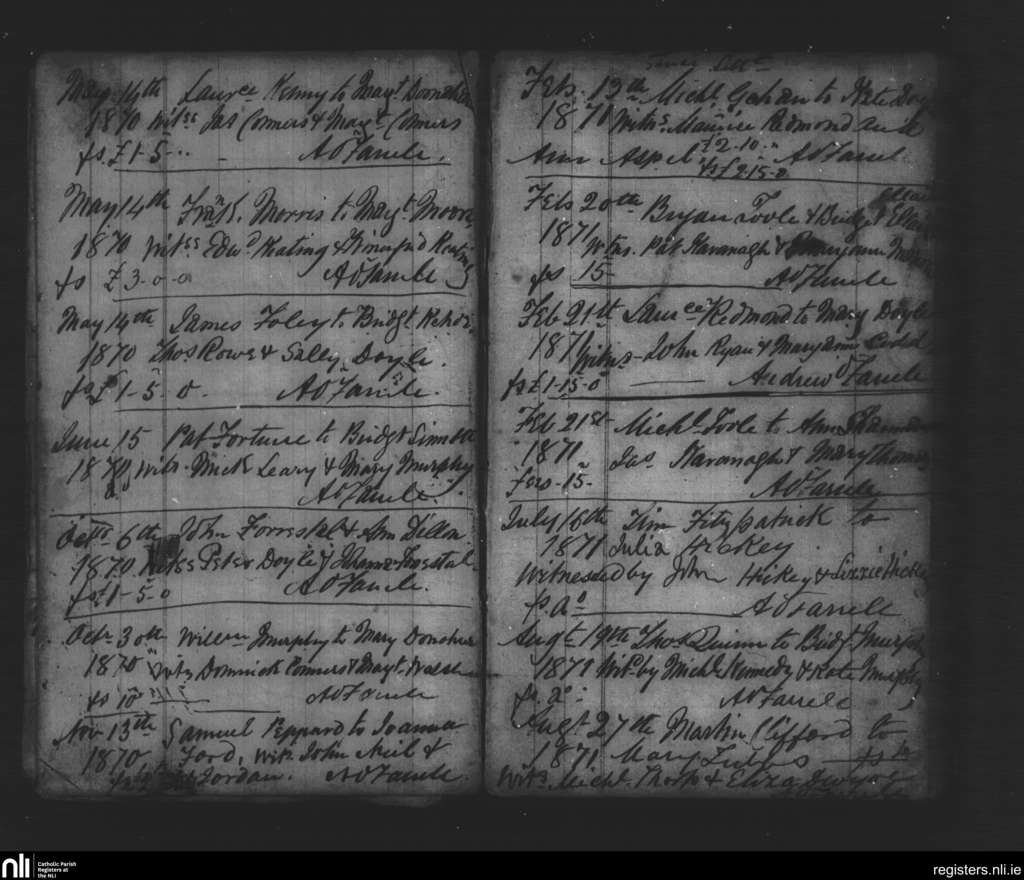 May 14th Laurce Kenny to Margt
1870 Witss Jas Connors & Margt Connors
fs £1-5- A OFarrell.
May 14th Frank. Morris to Margt Moore
1870 Witss Edwd Keating & Winefrid Keating
fs £3-0-0 A OFarrell
May 14th James Foley to Bridgt
1870 Thos Rowe & Sally Doyle.
fs £1-5-0. A OFarrell.
June 15 Pat Fortune to Bridgt Sinnott
1870, Wits. Mick Leary & Mary Murphy
A OFarrell.
Octr 6th John Forrestal & Ann Dillon
1870 Peter Doyle & Forrestal.
fs £1-5-0 A OFarrell.
Octr 30th Willm Murphy to Mary Donohue
1870 Wits Dominick Connors & Margt Walsh
fs 10 A OFarrell
Nov 13th Samuel Peppard to Joanna
1870 Ford, Wits. John Neil &
Jordan. A OFarrell.
Feb. 13th Michl Gahan to Kate Doyle
1871 Witss. Maurice Redmond and
£2-10-"
Ann Aspel A OFarrell.
fs £2-15-0
Feb 20th Bryan Toole & Bridgt
1871 Wtns. Pat Kavanagh &
fs 15- A OFarrell
Feb 21st Laurce Redmond to Mary Doyle
1871 Witns- John Ryan & Maryanne
fs £1-15-0 Andrew OFarrell
Feb 21st Michl. Toole to Ann
1871 Jas Kavanagh & Mary
fees-15- A OFarrell
July 16th Tim Fitzpatrick to
1871 Julia Hickey
Witnessed by John Hickey & Lizzie Hickey
f. ao A OFarrell
Augt 19th Thos Quinn to Bridgt Murphy
1871 Witd by Michl Kennedy & Kate Murphy
f. ao: A OFarrell
Augt 27th Martin Clifford to
1871. Mary Tubbs
Wits. Michl. Thorp & Eliza
nli
Catholic Parish
Registers at
the NLI
registers.nli.ie